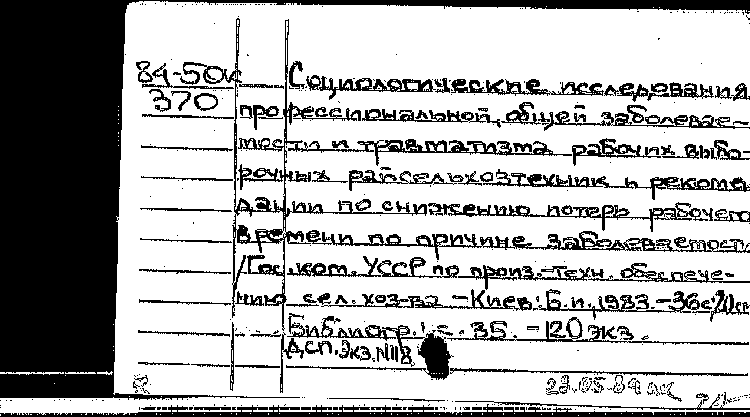 84-50к
370
Социологические исследования
профессиональной, общей заболевае-
мости и травматизма рабочих выбо-
рочных райсельхозтехник и рекомен
дации по снижению потерь рабочего
времени по причине заболеваемости
/Гос. ком. УССР по произ.-техн. обеспече-
нию сел. хоз-ва - Киев: Б.и., 1983. - 36с;20см
Библиогр.: с. 35. - 120 экз.
ДСП. Экз. N118
23.05.84